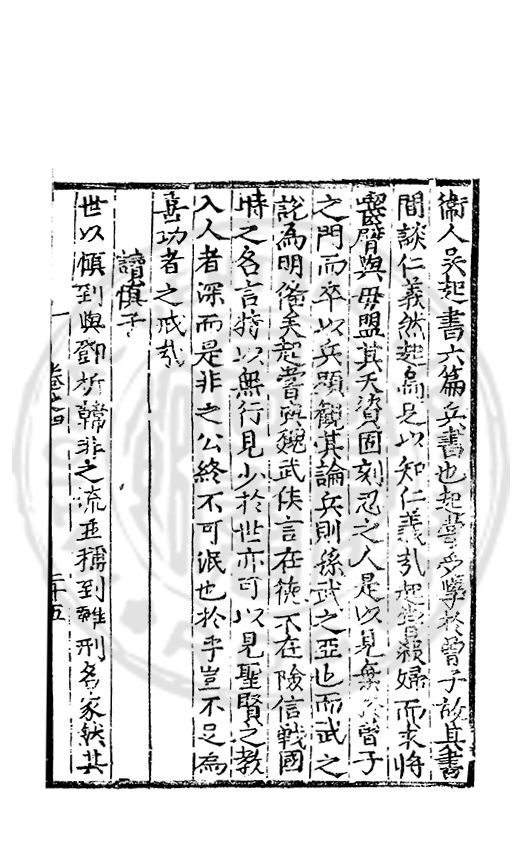 衞人吳起書六篇兵書也起嘗受學於曾子故其書
間談仁義然起烏足以知仁義哉起嘗殺婦而求將
齧臂與母盟其天資固刻忍之人是以見棄於曾子
之門而卒以兵顯觀其論兵則孫武之亞也而武之
說為明備矣起嘗與魏武侯言在德不在險信戰國
時之名言特以無行見少於世亦可以見聖賢之教
入人者深而是非之公終不可泯也於乎豈不足為
喜功者之戒哉
讀愼子
世以愼到與鄧析韓非之流並稱到雖刑名家然其
卷之四
二十五